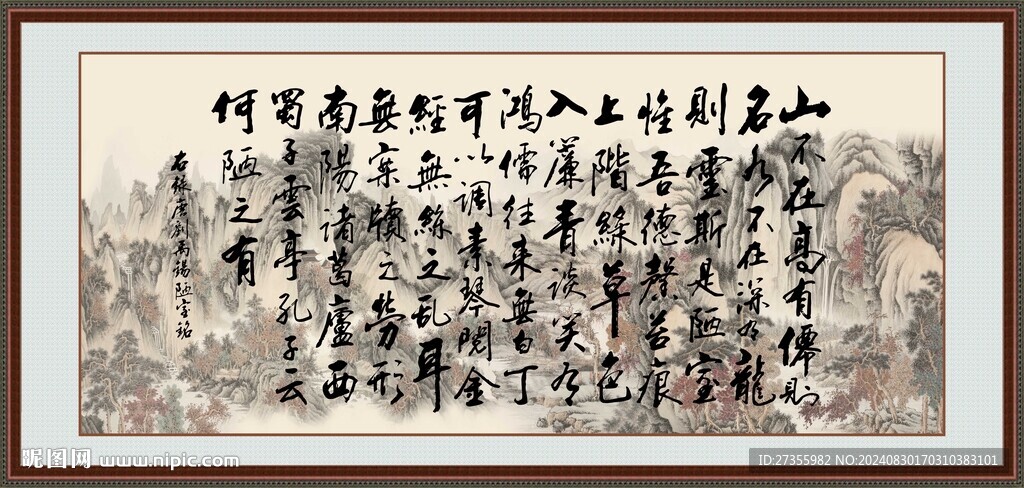 山不在高有僊則
名水不在深有龍
則靈斯是陋室
惟吾德馨苔痕
上階綠草色
入簾青談笑有
鴻儒往来無白丁
可以調素琴閱金
經無絲之乱耳
無案牘之勞形
南陽諸葛廬西
蜀子雲亭孔子云
何陋之有
右錄唐劉禹錫陋室銘
昵图网 www.nipic.com
ID:27355982 NO:20240830170310383101